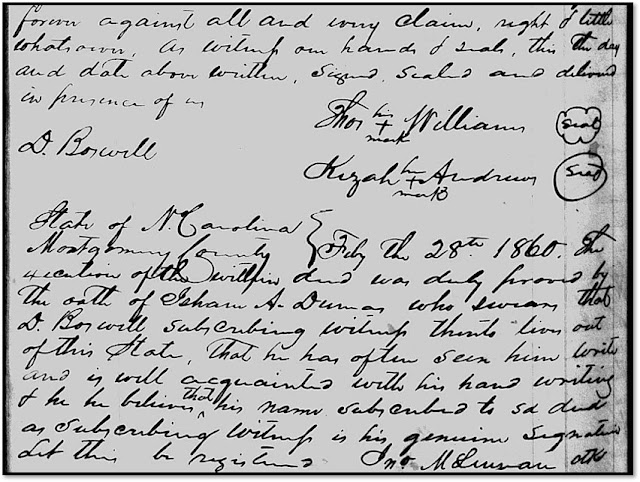 forever against all and every claim, right & title
whatsoever, As witness our hands & seals, this the day
and date above written, Signed, Sealed and delivered
in presence of us
Thos his + mark Williams Seal
D. Boswell
Kizah her + mark Andrews Seal
State of N. Carolina
Montgomery County } Feby the 28th 1860. The
execution of the within deed was duly proved by
the oath of Isham A. Dumas who swears that
D. Boswell, subscribing witness thereto lives out
of this State, That he has often seen him write
and is well acquainted with his hand writing
& he he believes that his name subscribed to sd deed
as Subscribing Witness is his genuine Signature
Let this be registered Jno. McLennan